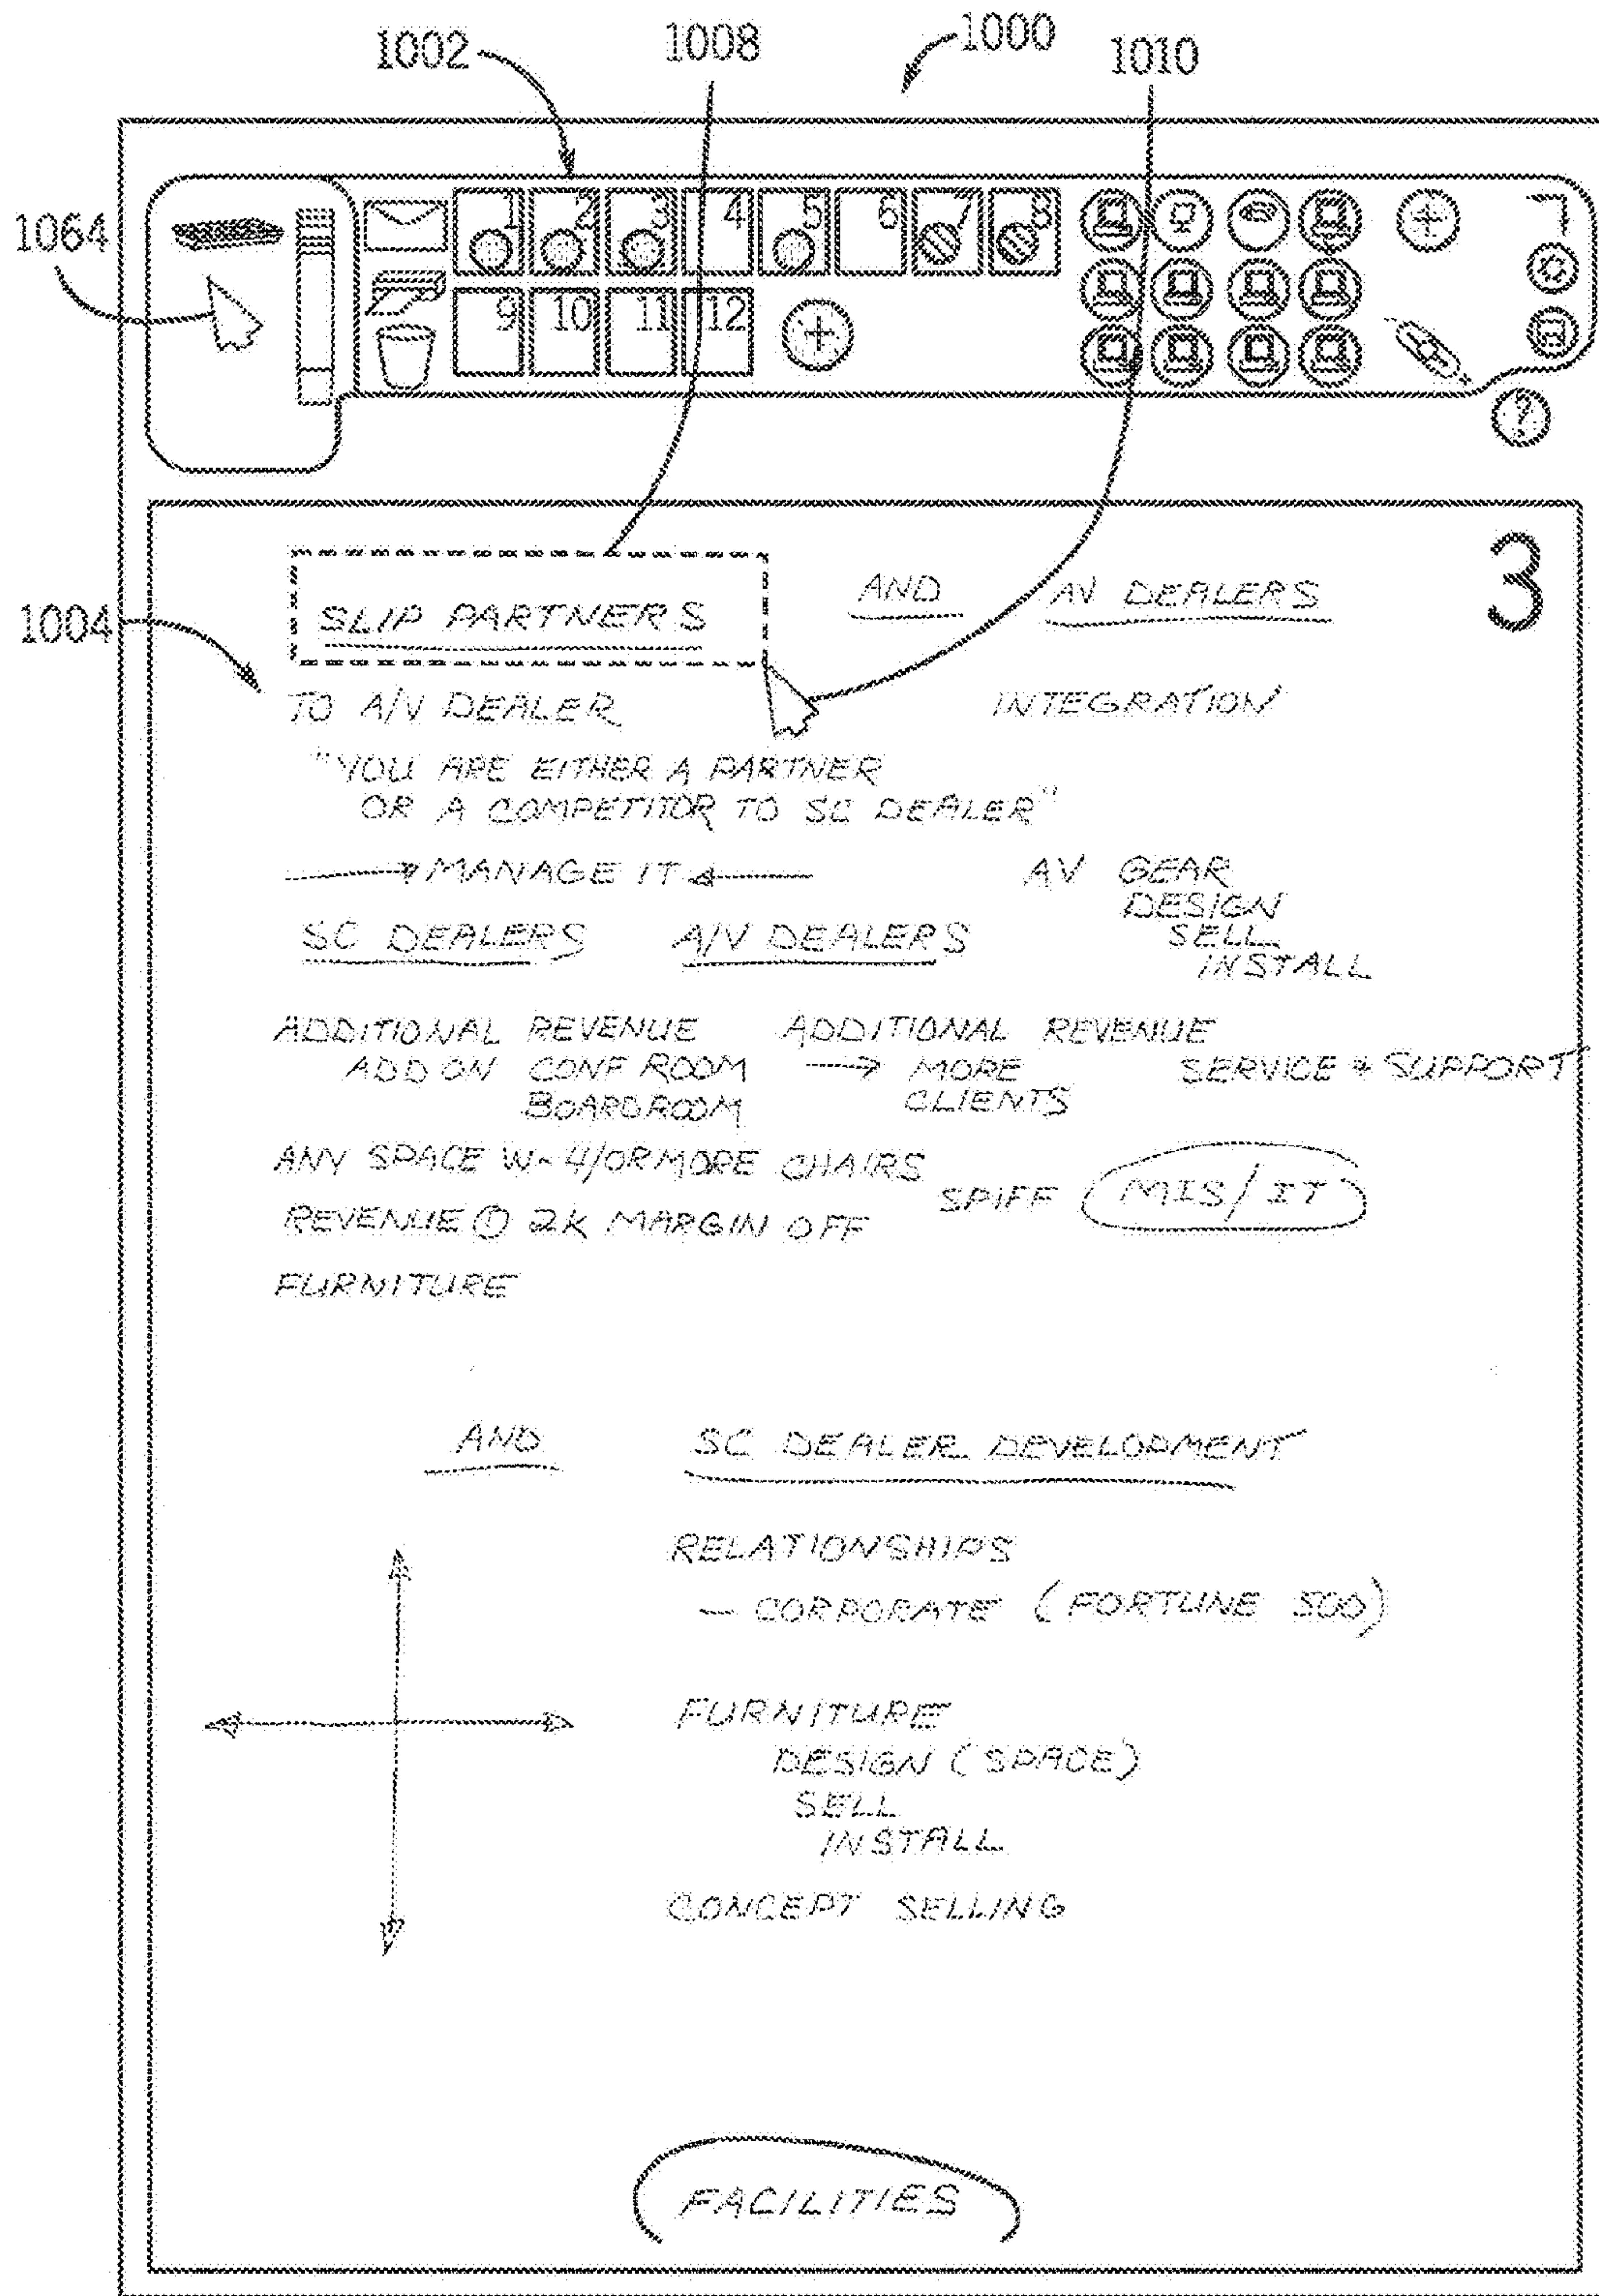 1002 1008 1000 1010
1064
1 2 3 4 5 6 7 8
9 10 11 12
?
3
SLIP PARTNERS AND AV DEALERS
1004
TO A/V DEALER INTEGRATION
"YOU ARE EITHER A PARTNER
OR A COMPETITOR TO SC DEALER"
MANAGE IT AV GEAR
DESIGN
SC DEALERS A/V DEALERS SELL
INSTALL
ADDITIONAL REVENUE ADDITIONAL REVENUE
ADD ON CONF ROOM → MORE SERVICE & SUPPORT
BOARDROOM CLIENTS
ANY SPACE W- 4/OR MORE CHAIRS
SPIFF MIS/IT
REVENUE ① 2K MARGIN OFF
FURNITURE
AND SC DEALER DEVELOPMENT
RELATIONSHIPS
— CORPORATE (FORTUNE 500)
FURNITURE
DESIGN (SPACE)
SELL
INSTALL
CONCEPT SELLING
FACILITIES